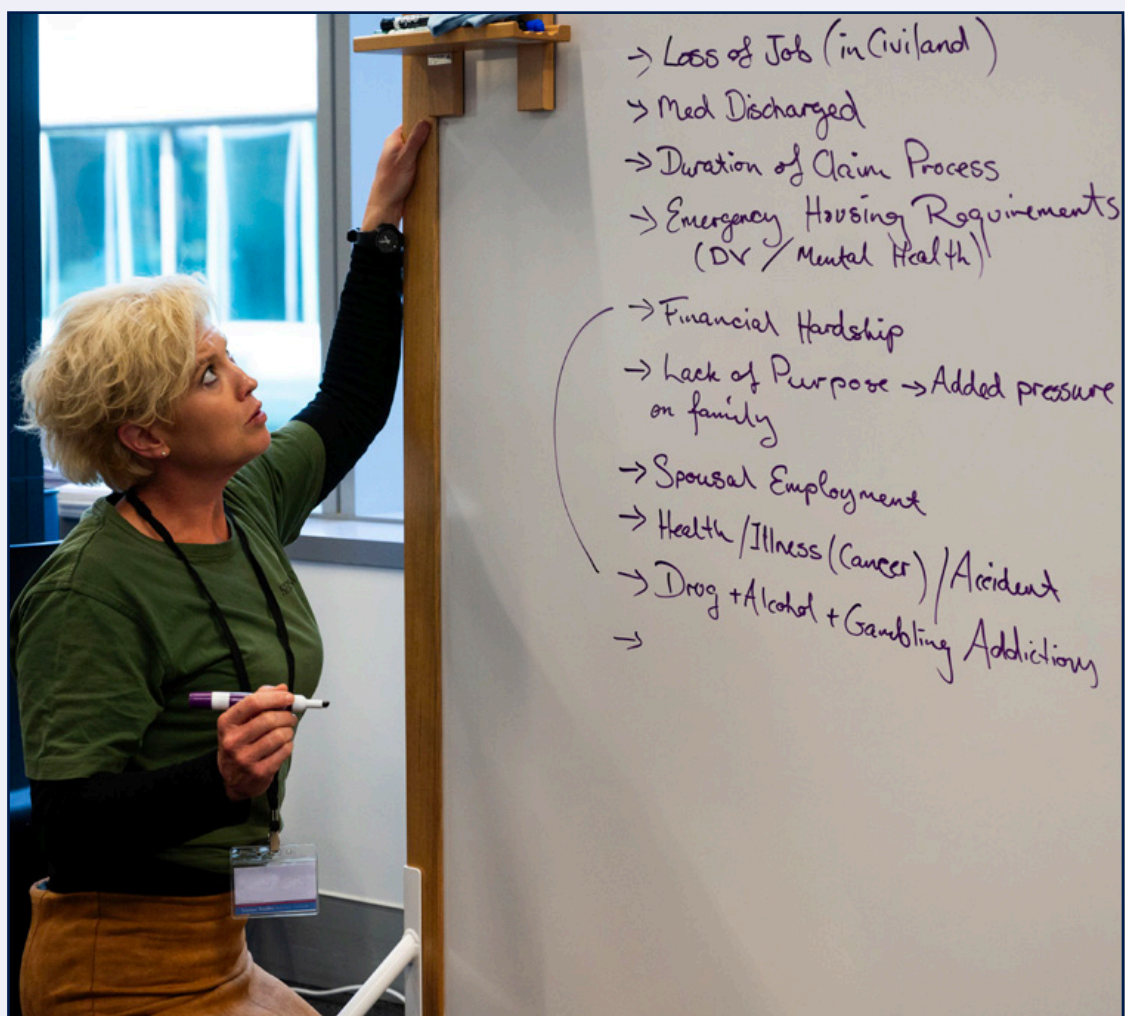 → Loss of Job (in Civiland)
→ Med Discharged
→ Duration of Claim Process
→ Emergency Housing Requirements
(DV / Mental Health)
→ Financial Hardship
→ Lack of Purpose → Added pressure
on family
→ Spousal Employment
→ Health / Illness (Cancer) / Accident
→ Drug + Alcohol + Gambling Addictions
→